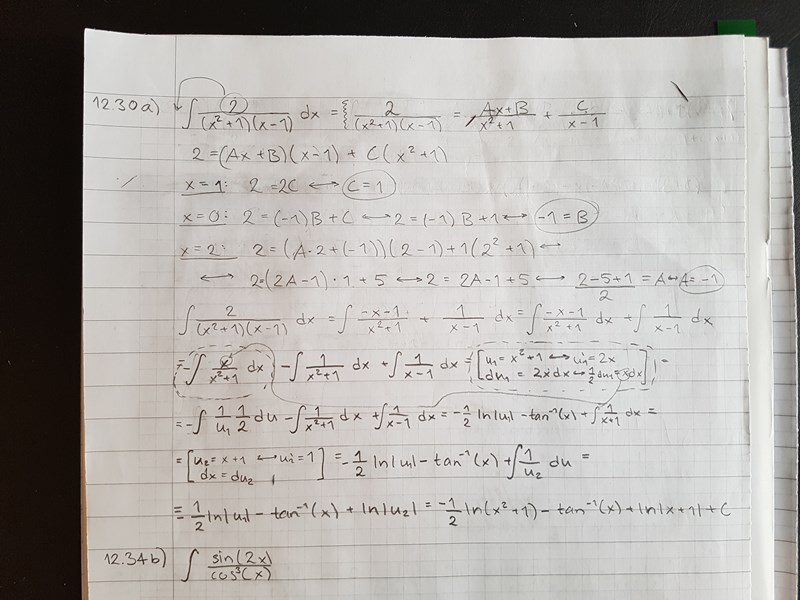 12.30a) ∫ 2/((x²+1)(x-1)) dx = { 2/((x²+1)(x-1)) = (Ax+B)/(x²+1) + C/(x-1)
2=(Ax+B)(x-1) + C(x²+1)
x=1: 2=2C ↔ C=1
x=0: 2=(-1)B+C ↔ 2=(-1)B+1 ↔ -1=B
x=2: 2=(A·2+(-1))(2-1)+1(2²+1) ↔
↔ 2=(2A-1)·1+5 ↔ 2=2A-1+5 ↔ (2-5+1)/2 = A ↔ A=-1
∫ 2/((x²+1)(x-1)) dx = ∫ (-x-1)/(x²+1) + 1/(x-1) dx = ∫ (-x-1)/(x²+1) dx + ∫ 1/(x-1) dx
= -∫ x/(x²+1) dx - ∫ 1/(x²+1) dx + ∫ 1/(x-1) dx = [u₁=x²+1 ↔ u₁'=2x
du₁ = 2xdx ↔ ½ du₁ = xdx] =
= -∫ 1/u₁ 1/2 du - ∫ 1/(x²+1) dx + ∫ 1/(x-1) dx = -½ ln|u₁| - tan⁻¹(x) + ∫ 1/(x+1) dx =
= [u₂=x+1 ↔ u₁'=1
dx=du₂] = -½ ln|u₁| - tan⁻¹(x) + ∫ 1/u₂ du =
= ½ ln|u₁| - tan⁻¹(x) + ln|u₂| = -½ ln(x²+1) - tan⁻¹(x) + ln|x+1| + C
12.34b) ∫ sin(2x)/cos³(x)